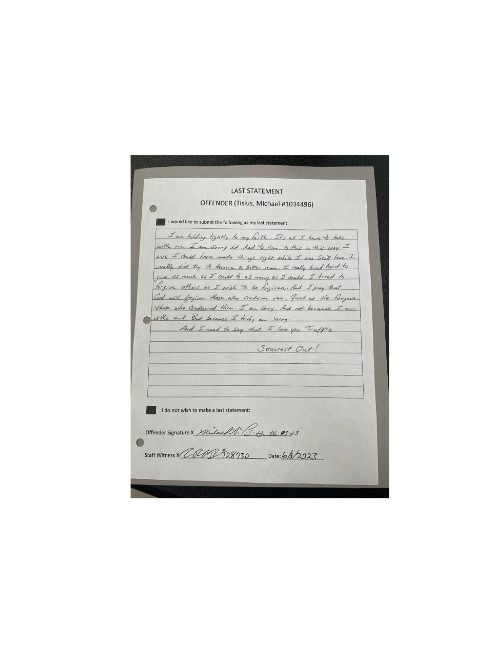 LAST STATEMENT
OFFENDER (Tisius, Michael #1034496)
I would like to submit the following as my last statement:
I am holding tightly to my faith. It's all I have to take
with me. I am sorry it had to come to this in this way. I
wish I could have made things right while I was still here. I
really did try to become a better man. I really tried hard to
give as much as I could to as many as I could. I tried to
forgive others as I wish to be forgiven. And I pray that
God will forgive those who condemn me. Just as He forgave
those who condemned Him. I am sorry. And not because I am
at the end. But because I truly am sorry.
And I need to say that I love you
Seacrest Out!
I do not wish to make a last statement:
Offender Signature X
Staff Witness X Date: 6/6/2023